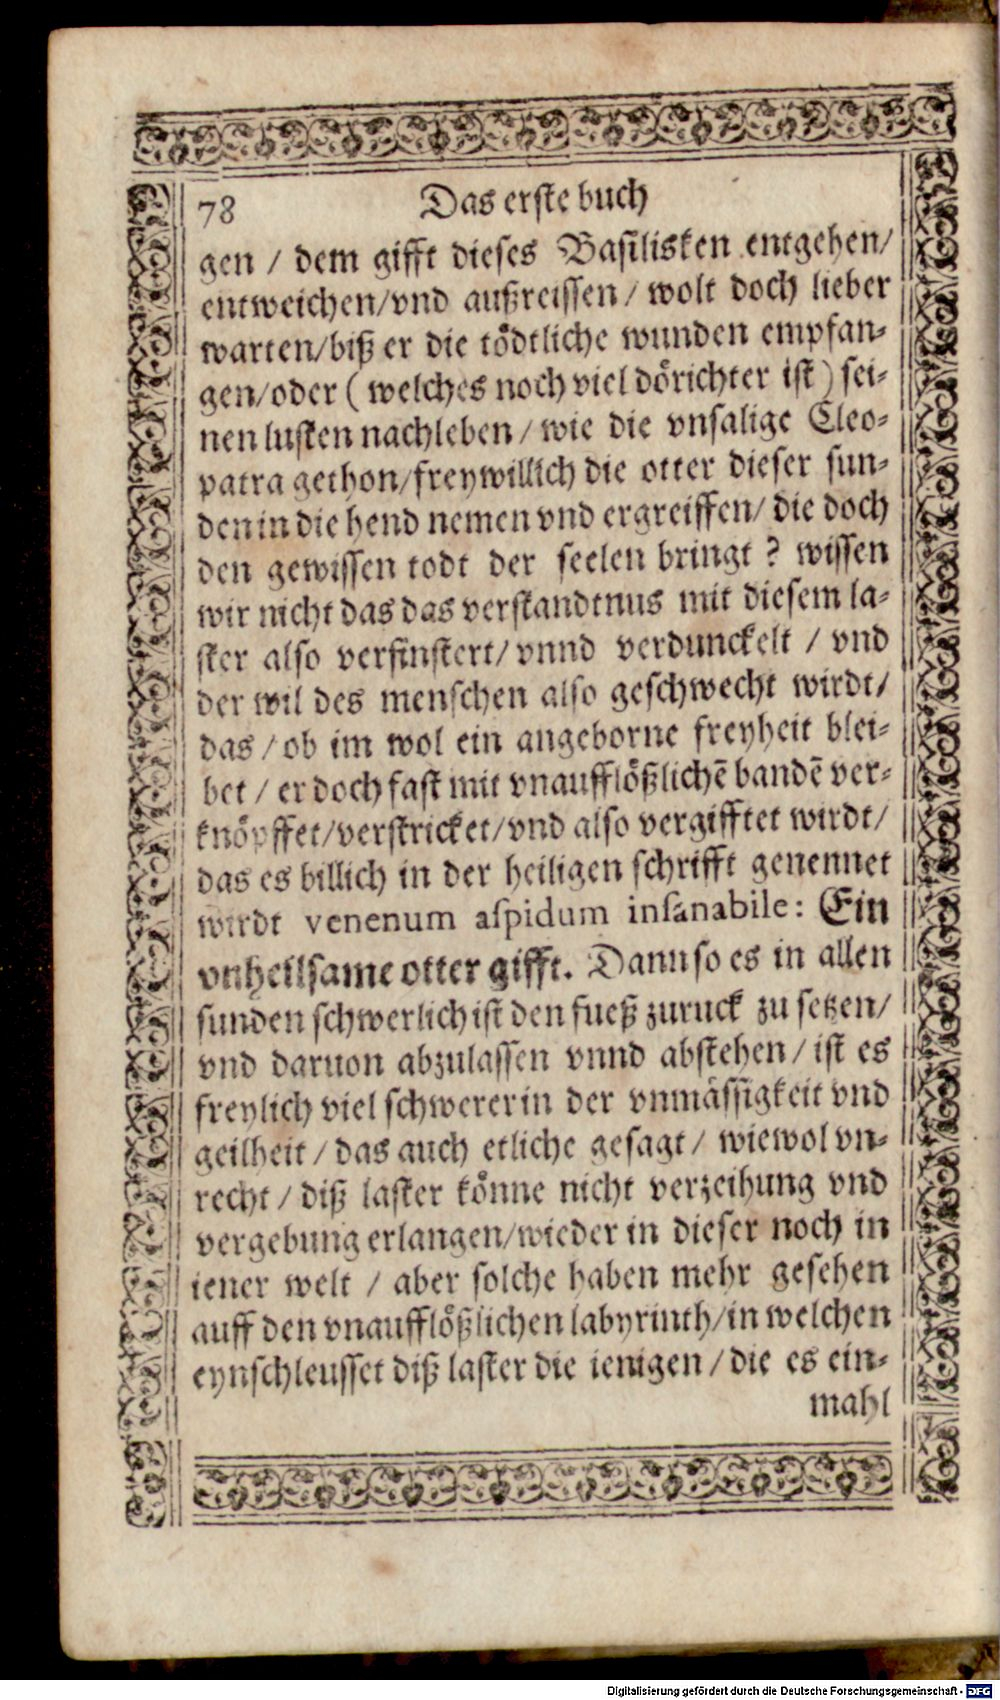 78 Das erste buch
gen / dem gifft dieses Basilisken entgehen/
entweichen/vnd außreissen / wolt doch lieber
warten/biß er die tödtliche wunden empfan-
gen/oder ( welches noch viel dörichter ist ) sei-
nen lusten nachleben / wie die vnsalige Cleo-
patra gethon/freywillich die otter dieser sun-
den in die hend nemen vnd ergreiffen/ die doch
den gewissen todt der seelen bringt ? wissen
wir nicht das das verstandtnus mit diesem la-
ster also verfinstert/ vnnd verdunckelt / vnd
der wil des menschen also geschwecht wirdt/
das / ob im wol ein angeborne freyheit blei-
bet / er doch fast mit vnaufflößlichē bandē ver-
knöpffet/verstricket/vnd also vergifftet wirdt/
das es billich in der heiligen schrifft genennet
wirdt venenum aspidum insanabile: Ein
vnheilsame otter gifft. Dann so es in allen
sunden schwerlich ist den fueß zuruck zu setzen/
vnd daruon abzulassen vnnd abstehen / ist es
freylich viel schwerer in der vnmässigkeit vnd
geilheit / das auch etliche gesagt / wiewol vn-
recht / diß laster könne nicht verzeihung vnd
vergebung erlangen/wieder in dieser noch in
iener welt / aber solche haben mehr gesehen
auff den vnaufflößlichen labyrinth/in welchen
eynschleusset diß laster die ienigen / die es ein-
mahl
Digitalisierung gefördert durch die Deutsche Forschungsgemeinschaft - DFG